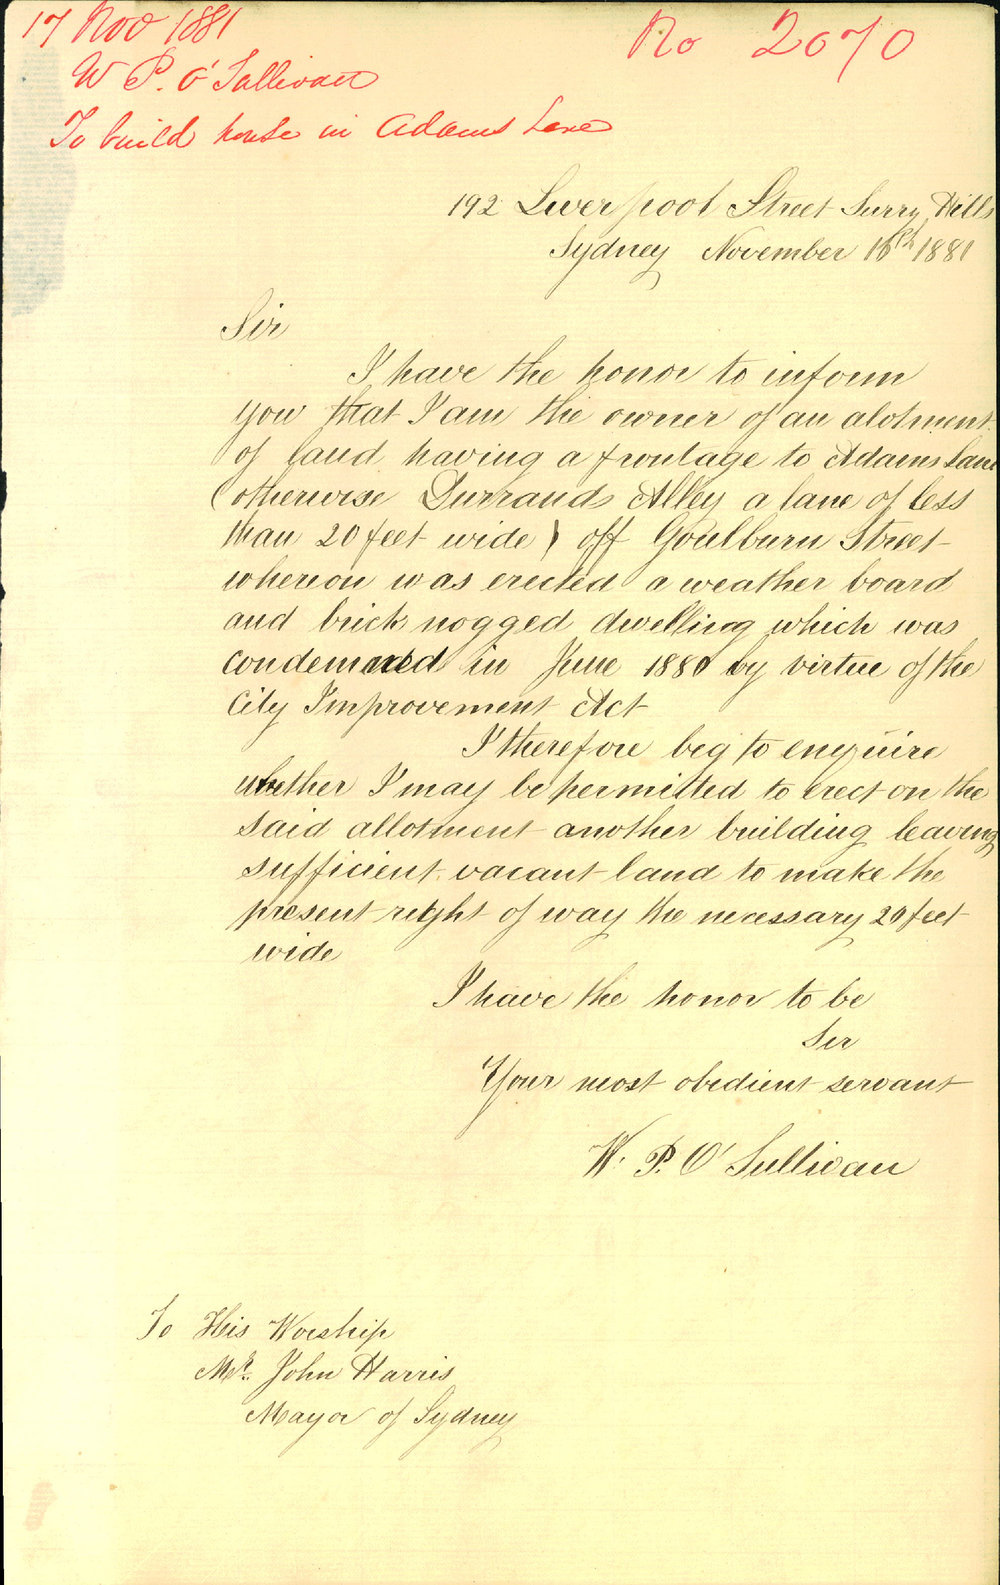 17 Nov 1881
No 2070
W P. O'Sullivan
To build house in Adams Lane
192 Liverpool Street Surry Hills
Sydney November 16th 1881
Sir
I have the honor to inform
you that I am the owner of an alotment
of land having a frontage to Adams Lane
(otherwise Durrands Alley a lane of less
than 20 feet wide) off Goulburn Street
whereon was erected a weather board
and brick nogged dwelling which was
condemned in June 1880 by virtue of the
City Improvement Act
I therefore beg to enquire
whether I may be permitted to erect on the
said allotment another building leaving
sufficient vacant land to make the
present right of way the necessary 20 feet
wide
I have the honor to be
Sir
Your most obedient servant
W. P. O'Sullivan
To His Worship
Mr. John Harris
Mayor of Sydney